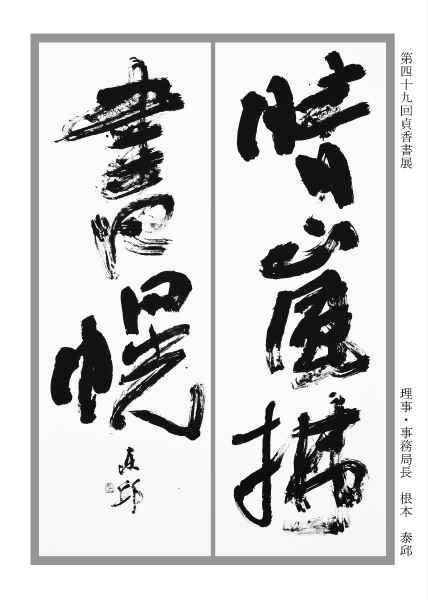 第四十九回貞香書展
理事・事務局長 根本 泰邱
晴嵐拂
書幌
泰邱